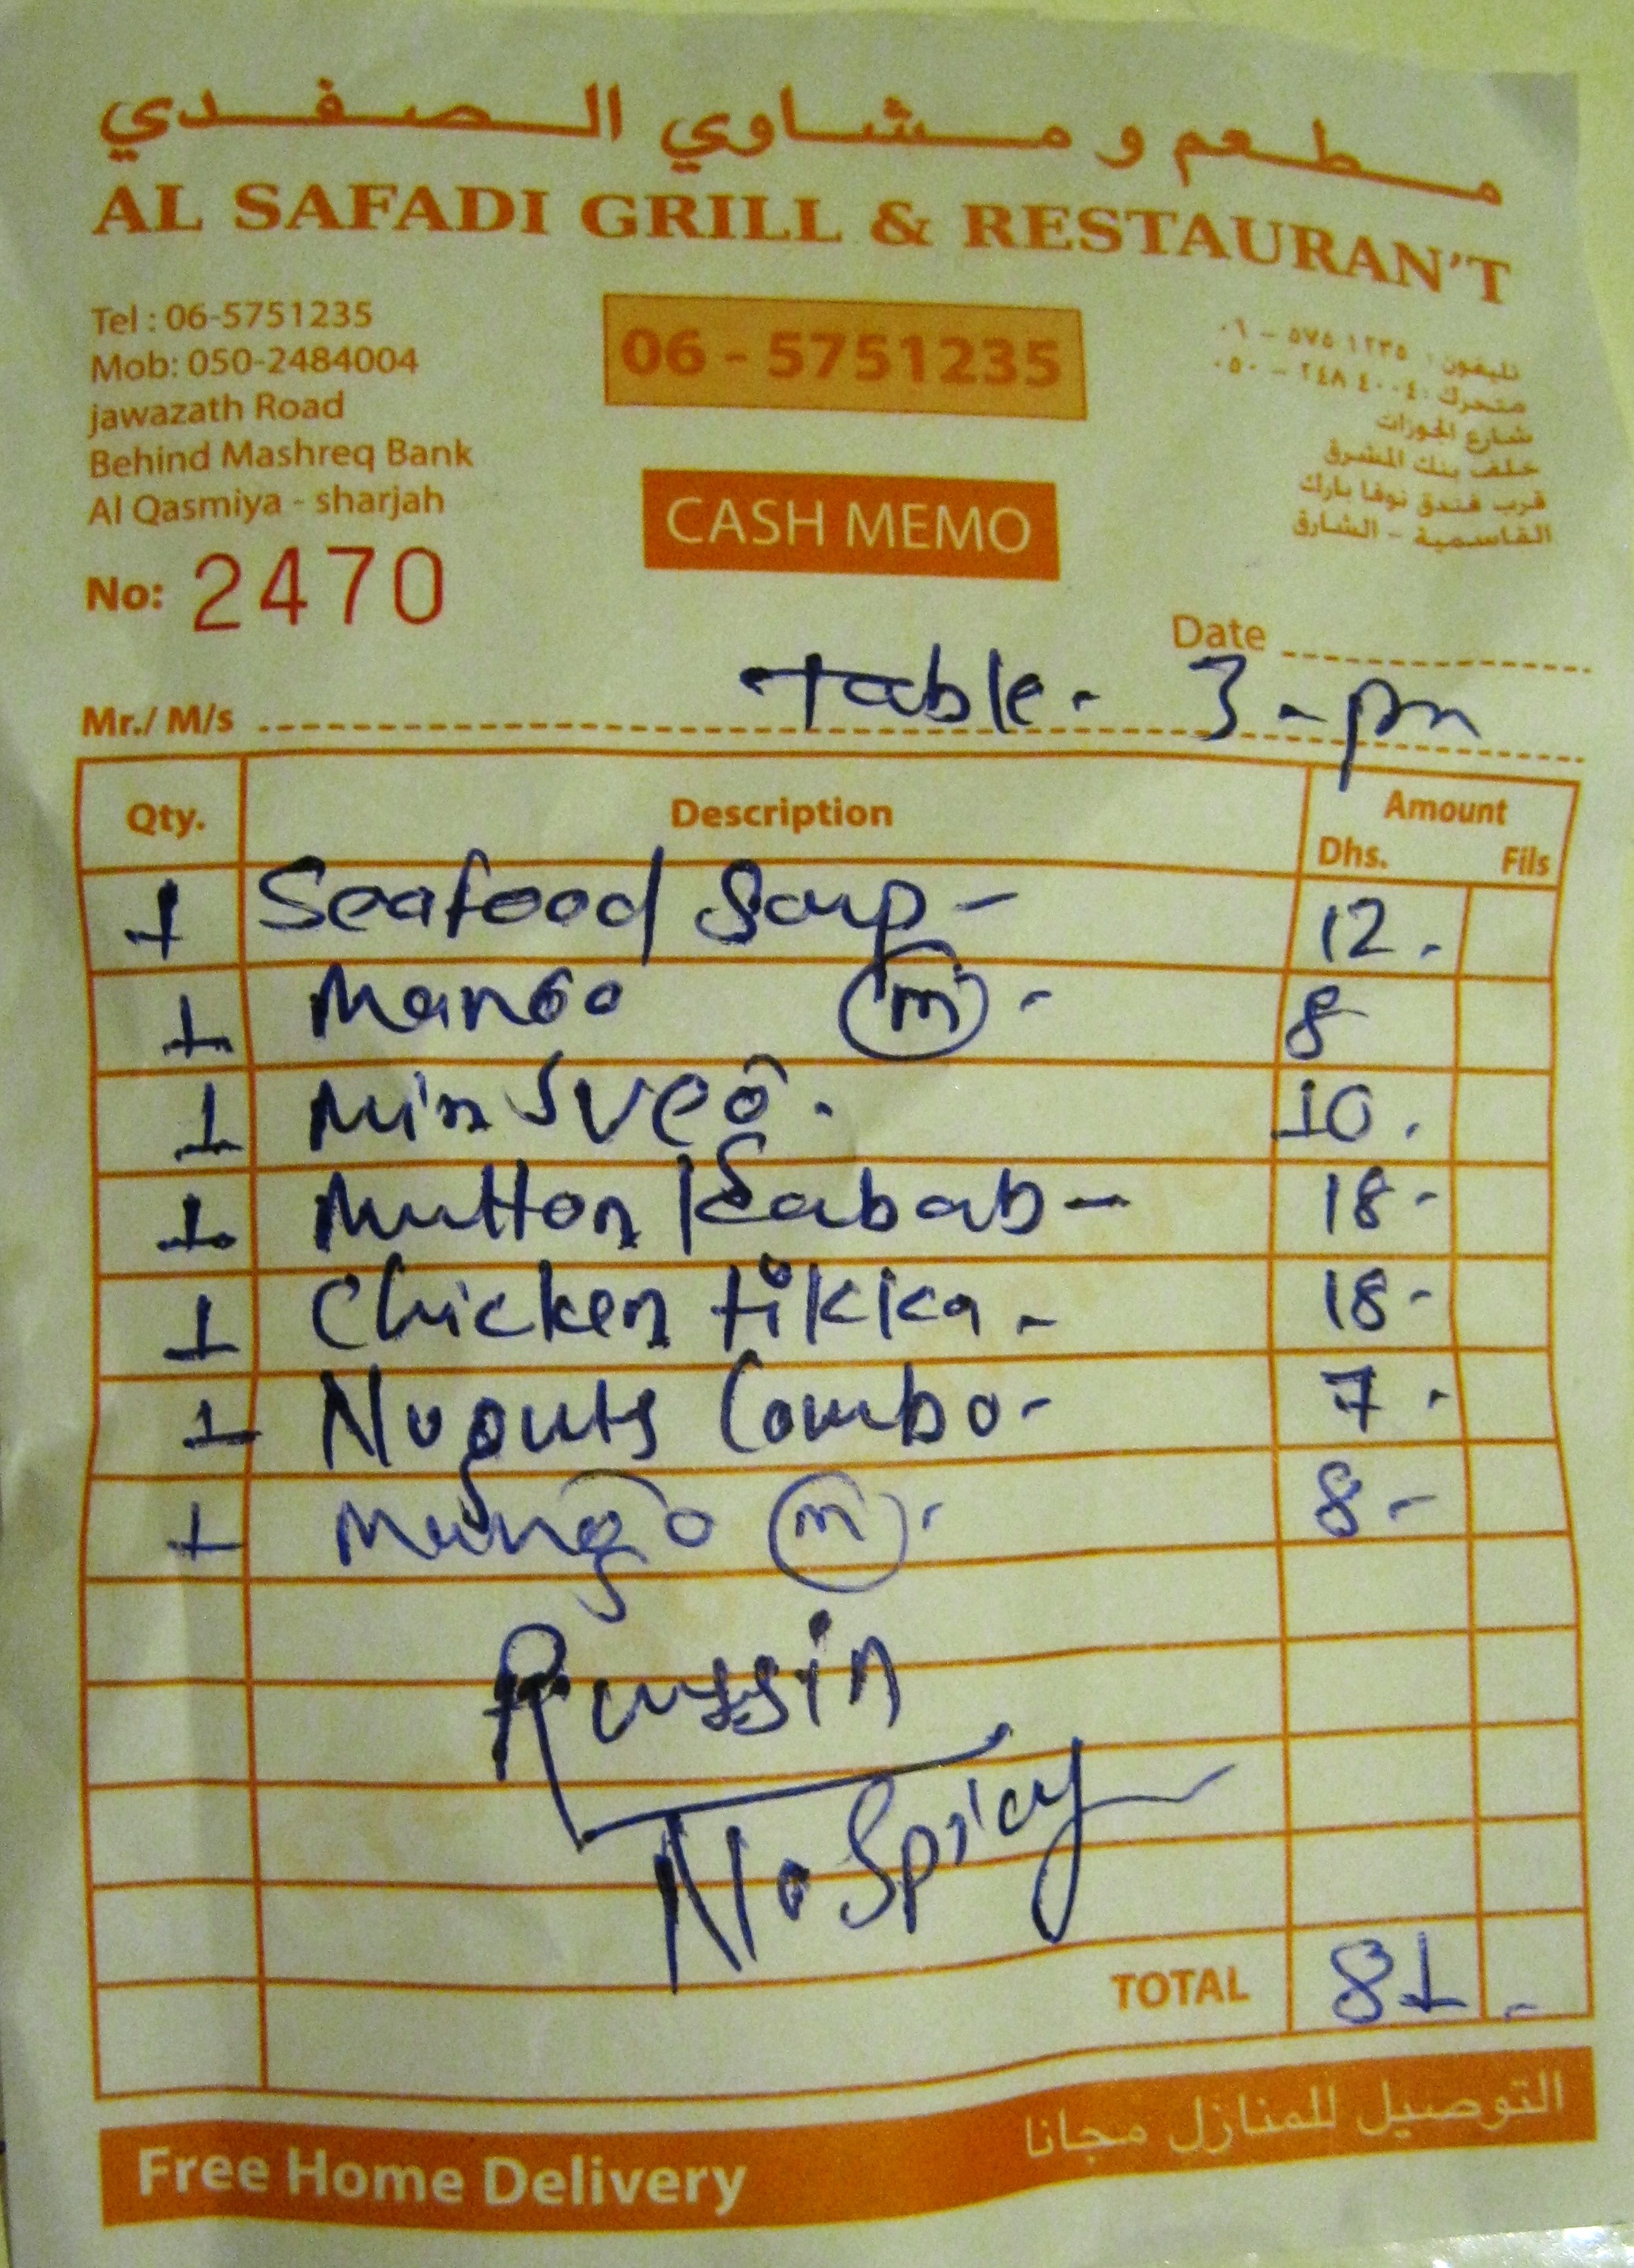 مطعم و مشاوي الصفدي
AL SAFADI GRILL & RESTAURAN'T
Tel : 06-5751235
Mob: 050-2484004
jawazath Road
Behind Mashreq Bank
Al Qasmiya - sharjah
06 - 5751235
CASH MEMO
تليفون : ٥٧٥١٢٣٥ – ٠٦
متحرك : ٢٤٨٤٠٠٤ – ٠٥٠
شارع الجوزات
خلف بنك المشرق
قرب فندق نوفا بارك
القاسمية - الشارق
No: 2470
Date
Mr./ M/s Table - 3 - pm
Qty. Description Amount
Dhs. Fils
1 Seafood Soup - 12 -
1 Mango (m) - 8
1 10 .
1 Mutton Kabab - 18 -
1 Chicken tikka - 18 -
1 Nuguts Combo - 7 -
1 Mango (m) - 8 -
Russin
No Spicy
TOTAL 81 -
Free Home Delivery التوصيل للمنازل مجانا